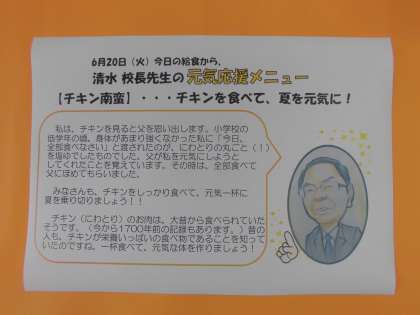 6月20日（火）今日の給食から、
清水 校長先生の 元気応援メニュー
【チキン南蛮】・・・チキンを食べて、夏を元気に！
私は、チキンを見ると父を思い出します。小学校の
低学年の頃、身体があまり強くなかった私に「今日、
全部食べなさい」と渡されたのが、にわとりの丸ごと（！）
を塩ゆでしたものでした。父が私を元気にしようと
してくれたことを覚えています。その時は、全部食べて
父にほめてもらいました。
みなさんも、チキンをしっかり食べて、元気一杯に
夏を乗り切りましょう！！
チキン（にわとり）のお肉は、大昔から食べられていた
そうです。（今から1700年前の記録もあります。）昔の
人も、チキンが栄養いっぱいの食べ物であることを知って
いたのですね。一杯食べて、元気な体を作りましょう！